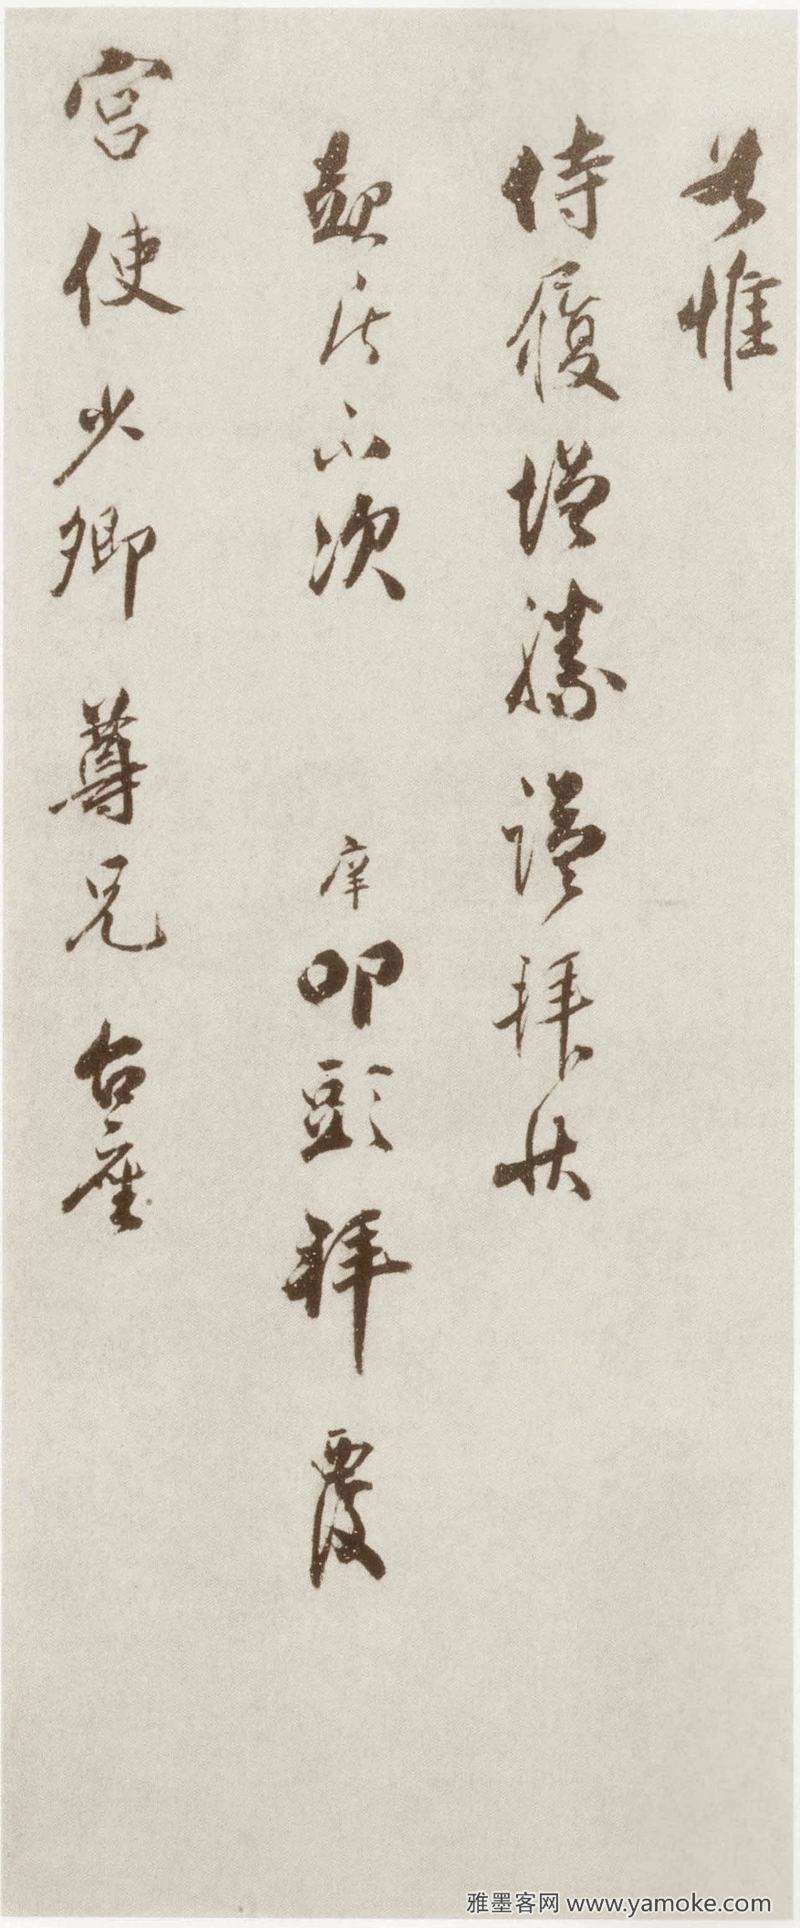 惟
侍履增勝謹拜狀
起居不次 庠叩頭拜覆
宮使少卿尊兄台座
雅墨客网 www.yamoke.com